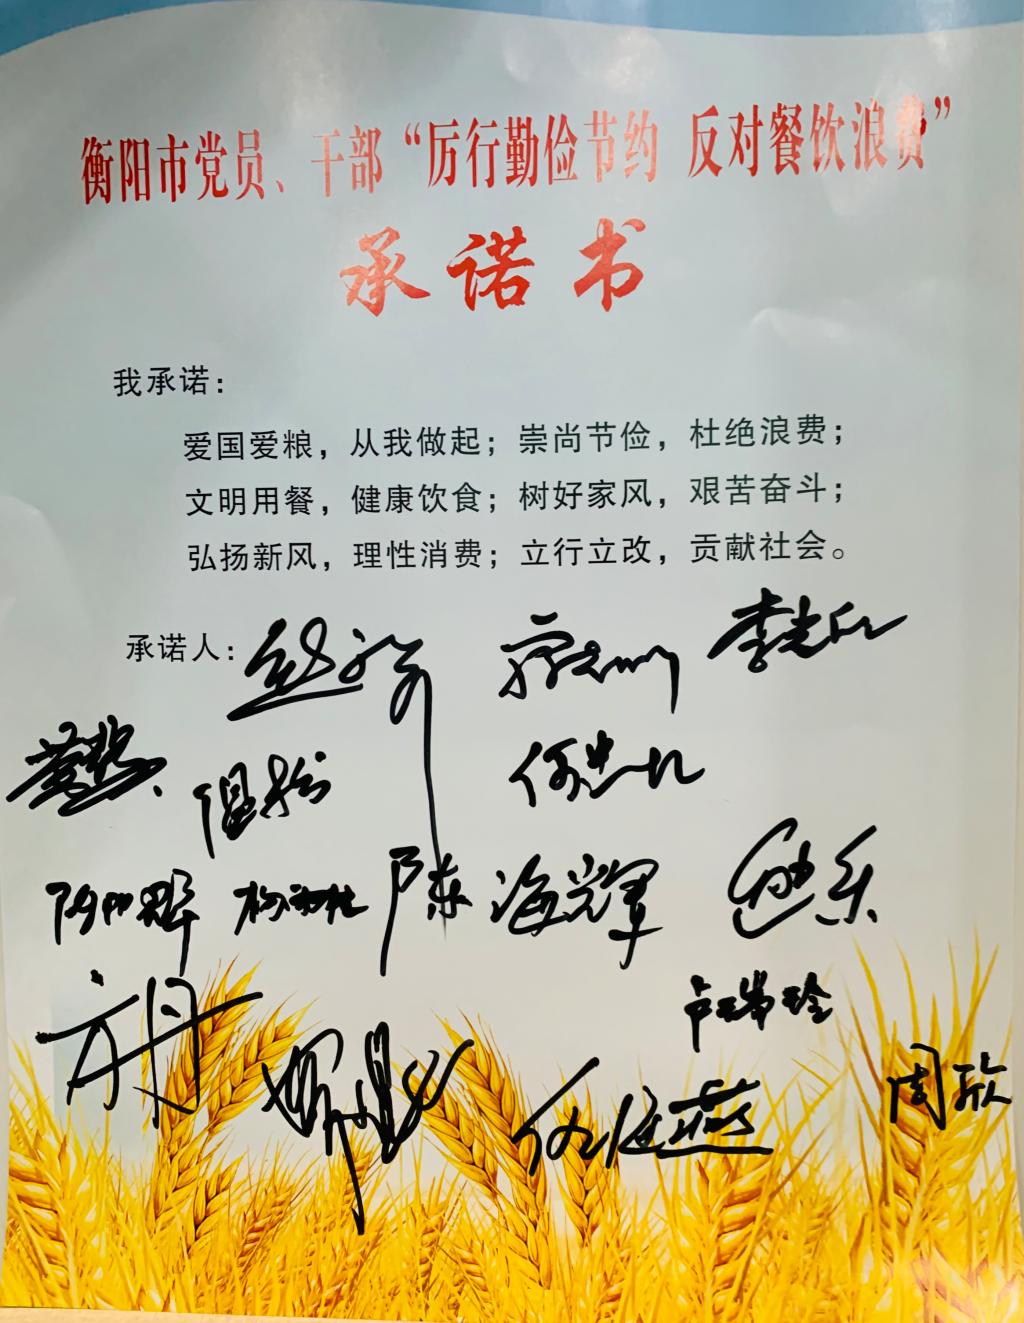 衡阳市党员、干部“厉行勤俭节约 反对餐饮浪费”
承诺书
我承诺：
爱国爱粮，从我做起；崇尚节俭，杜绝浪费；
文明用餐，健康饮食；树好家风，艰苦奋斗；
弘扬新风，理性消费；立行立改，贡献社会。
承诺人：
陈海辉
方丹
卢瑞玲
周欣